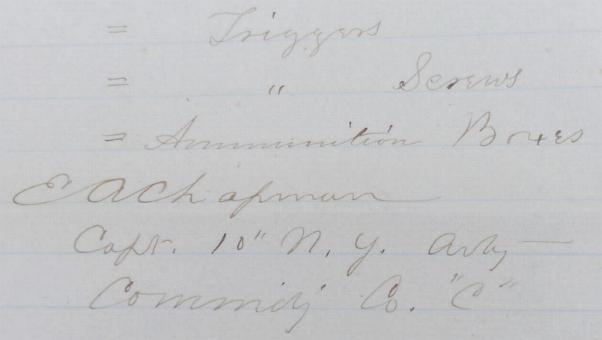 = Triggers
= " Screws
= Ammunition Boxes
E A Chapman
Capt. 10" N. Y. Arty
Commdg Co. "C"